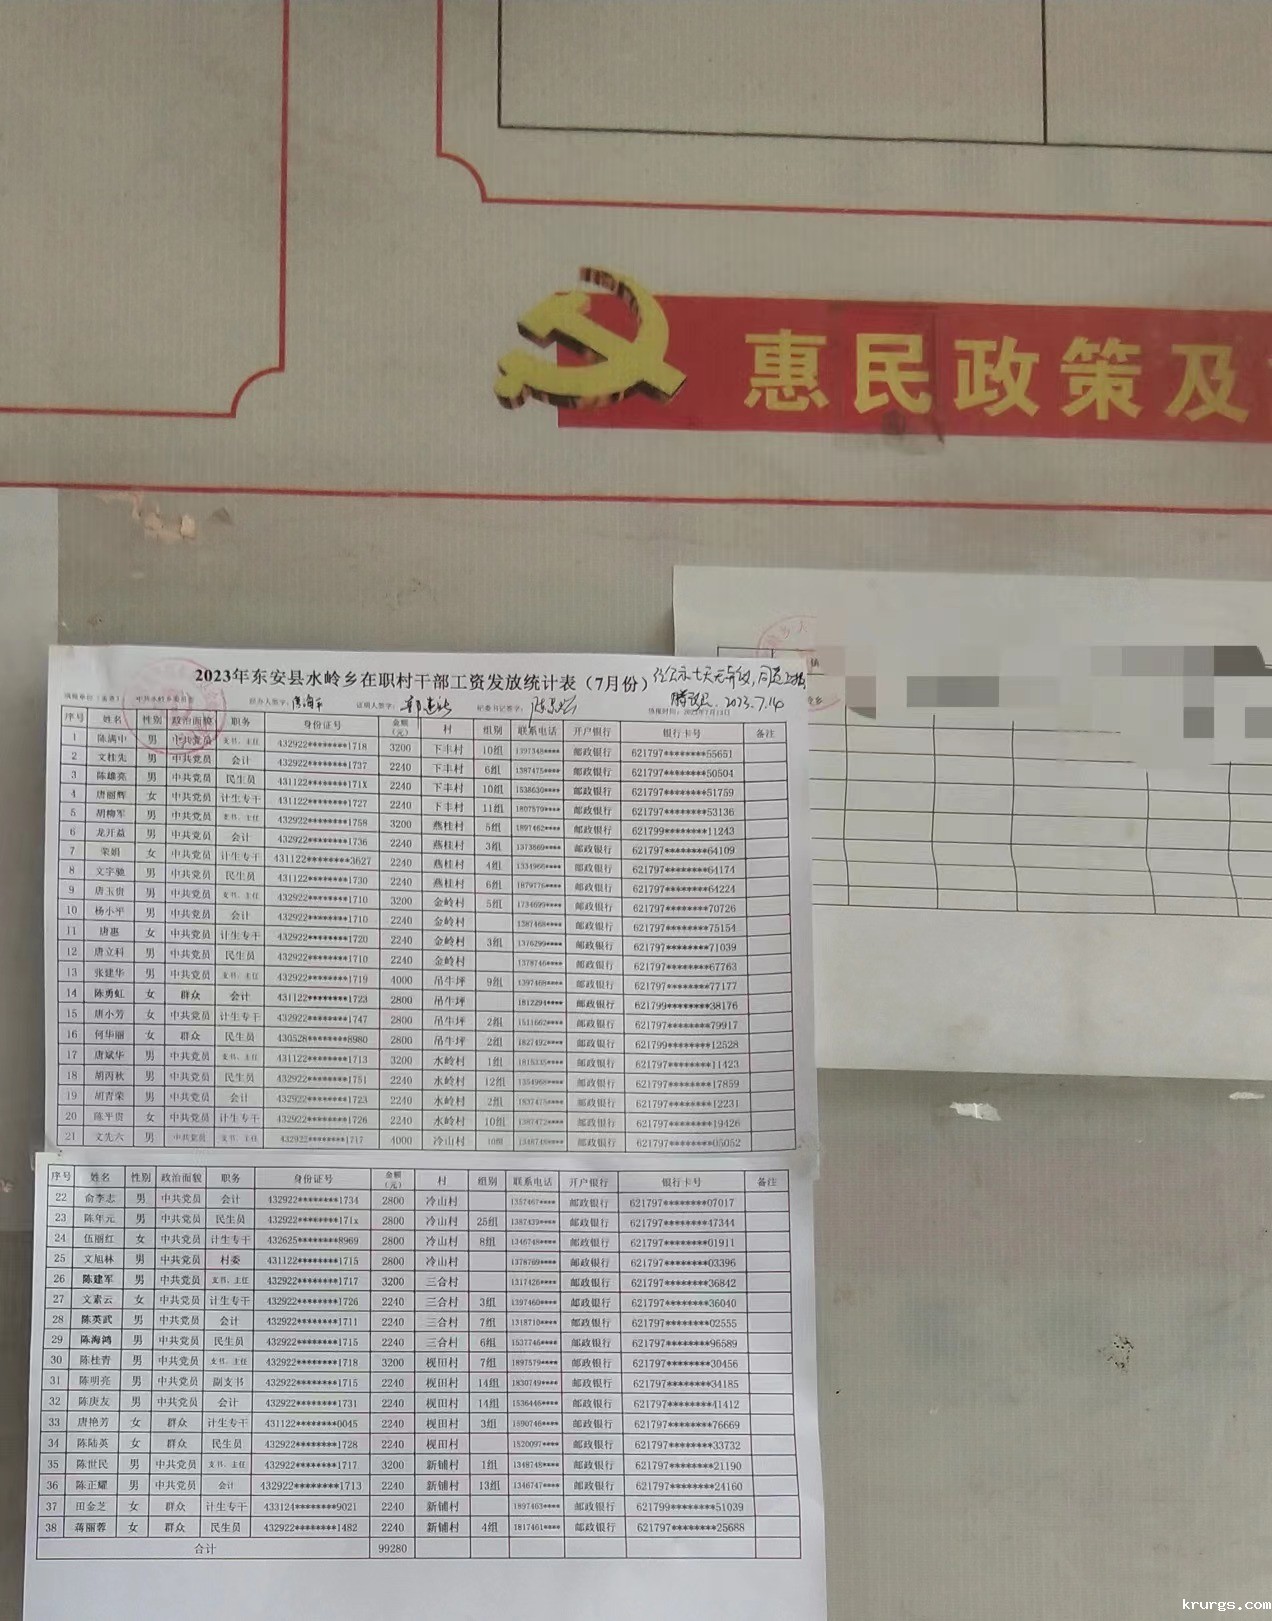 惠民政策及
2023年东安县水岭乡在职村干部工资发放统计表（7月份）
经公示七天无异议,同意上报
2023.7.14
经办人签字：
证明人签字：
纪委书记签字：
序号 姓名 性别 政治面貌 职务 身份证号 金额（元） 村 组别 联系电话 开户银行 银行卡号 备注
1 陈满中 男 中共党员 支书、主任 432922********1718 3200 下丰村 10组 1397348**** 邮政银行 621797********55651
2 文桂先 男 中共党员 会计 432922********1737 2240 下丰村 6组 1387475**** 邮政银行 621797********50504
3 陈雄亮 男 中共党员 民生员 431122********171X 2240 下丰村 10组 1538630**** 邮政银行 621797********51759
4 唐丽辉 女 中共党员 计生专干 431122********1727 2240 下丰村 11组 1807579**** 邮政银行 621797********53136
5 胡柳军 男 中共党员 支书、主任 432922********1758 3200 燕桂村 5组 1897462**** 邮政银行 621799********11243
6 龙开益 男 中共党员 会计 432922********1736 2240 燕桂村 3组 1373869**** 邮政银行 621797********64109
7 荣娟 女 中共党员 计生专干 431122********3627 2240 燕桂村 4组 1334966**** 邮政银行 621797********64174
8 文字驰 男 中共党员 民生员 431122********1730 2240 燕桂村 6组 1879776**** 邮政银行 621797********64224
9 唐玉贵 男 中共党员 支书、主任 432922********1710 3200 金岭村 5组 1734699**** 邮政银行 621797********70726
10 杨小平 男 中共党员 会计 432922********1710 2240 金岭村 1387468**** 邮政银行 621797********75154
11 唐惠 女 中共党员 计生专干 432922********1720 2240 金岭村 3组 1376299**** 邮政银行 621797********71039
12 唐立科 男 中共党员 民生员 432922********1710 2240 金岭村 1378746**** 邮政银行 621797********67763
13 张建华 男 中共党员 支书、主任 432922********1719 4000 吊牛坪 9组 1397468**** 邮政银行 621797********77177
14 陈勇虹 女 群众 会计 431122********1723 2800 吊牛坪 1812294**** 邮政银行 621799********38176
15 唐小芳 女 中共党员 计生专干 432922********1747 2800 吊牛坪 2组 1511662**** 邮政银行 621797********79917
16 何华丽 女 群众 民生员 430528********8980 2800 吊牛坪 2组 1827492**** 邮政银行 621799********12528
17 唐斌华 男 中共党员 支书、主任 431122********1713 3200 水岭村 1组 1815335**** 邮政银行 621797********11423
18 胡丙秋 男 中共党员 民生员 432922********1751 2240 水岭村 12组 1354968**** 邮政银行 621797********17859
19 胡青荣 男 中共党员 会计 432922********1723 2240 水岭村 2组 1837475**** 邮政银行 621797********12231
20 陈平贵 女 中共党员 计生专干 432922********1726 2240 水岭村 10组 1387472**** 邮政银行 621797********19426
21 文先六 男 中共党员 支书、主任 432922********1717 4000 冷山村 10组 1348748**** 邮政银行 621797********05052
序号 姓名 性别 政治面貌 职务 身份证号 金额（元） 村 组别 联系电话 开户银行 银行卡号 备注
22 俞李志 男 中共党员 会计 432922********1734 2800 冷山村 1357467**** 邮政银行 621797********07017
23 陈年元 男 中共党员 民生员 432922********171x 2800 冷山村 25组 1387439**** 邮政银行 621797********47344
24 伍丽红 女 中共党员 计生专干 432625********8969 2800 冷山村 8组 1346748**** 邮政银行 621797********01911
25 文旭林 男 中共党员 村委 431122********1715 2800 冷山村 1378769**** 邮政银行 621797********03396
26 陈建军 男 中共党员 支书、主任 432922********1717 3200 三合村 1317426**** 邮政银行 621797********36842
27 文素云 女 中共党员 计生专干 432922********1726 2240 三合村 3组 1397460**** 邮政银行 621797********36040
28 陈英武 男 中共党员 会计 432922********1711 2240 三合村 7组 1318710**** 邮政银行 621797********02555
29 陈海鸿 男 中共党员 民生员 432922********1715 2240 三合村 6组 1537746**** 邮政银行 621797********96589
30 陈桂青 男 中共党员 支书、主任 432922********1718 3200 枧田村 7组 1897579**** 邮政银行 621797********30456
31 陈明亮 男 中共党员 副支书 432922********1715 2240 枧田村 14组 1830749**** 邮政银行 621797********34185
32 陈庚友 男 中共党员 会计 432922********1731 2240 枧田村 14组 1536446**** 邮政银行 621797********41412
33 唐艳芳 女 群众 计生专干 431122********0045 2240 枧田村 3组 1890746**** 邮政银行 621797********76669
34 陈陆英 女 群众 民生员 432922********1728 2240 枧田村 1520097**** 邮政银行 621797********33732
35 陈世民 男 中共党员 支书、主任 432922********1717 3200 新铺村 1组 1348748**** 邮政银行 621797********21190
36 陈正耀 男 中共党员 会计 432922********1713 2240 新铺村 13组 1346747**** 邮政银行 621797********24160
37 田金芝 女 群众 计生专干 433124********9021 2240 新铺村 1897463**** 邮政银行 621799********51039
38 蒋丽蓉 女 群众 民生员 432922********1482 2240 新铺村 4组 1817461**** 邮政银行 621797********25688
合计 99280
krurgs.com